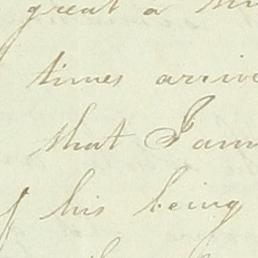 great a
times arrive
that I am
his being